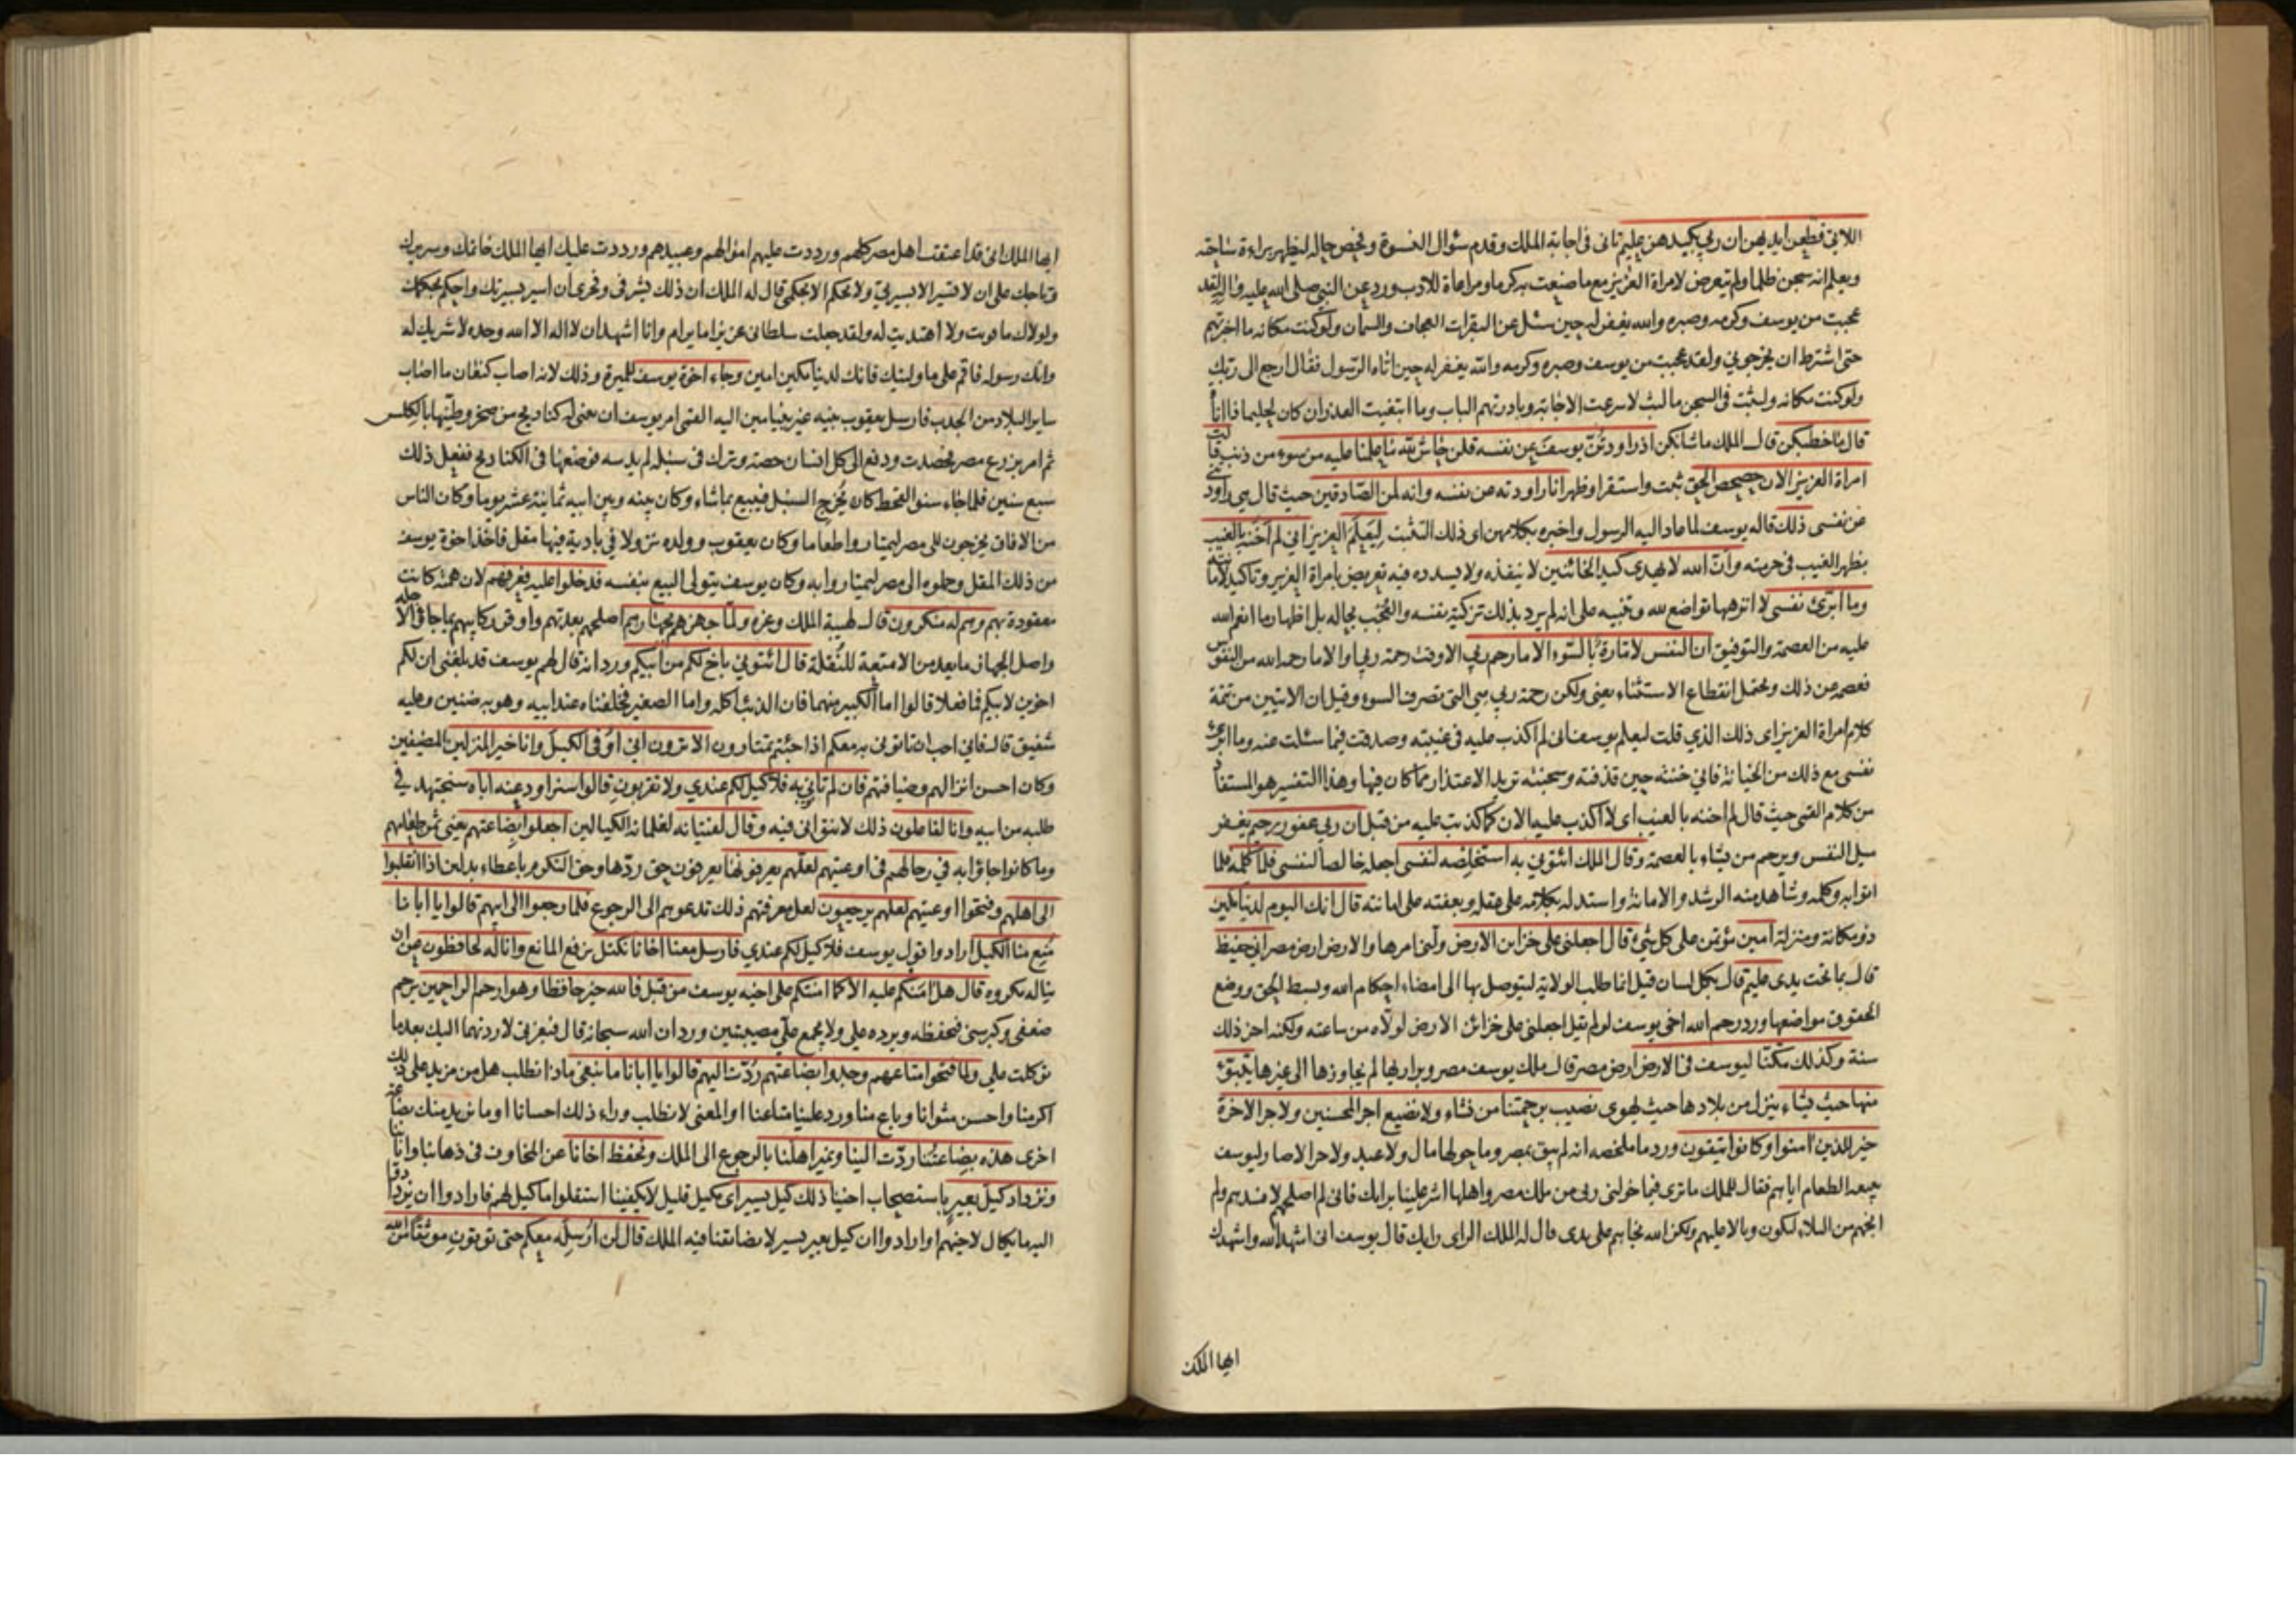 اللاتي قطعن ايديهن ان ربي بكيدهن عليم تانى فى اجابة الملك وقدم سئوال النسوة وفحص حاله ليظهر براءة ساحته
ويعلم انه سجن ظلما ولم يتعرض لامراة العزيز مع ما صنعت به كرما ومراعاة للادب وورد عن النبي صلى الله عليه واله لقد
عجبت من يوسف وكرمه وصبره والله يغفر له حين سئل عن البقرات العجاف والسمان ولو كنت مكانه ما اخبرتهم
حتى اشترط ان يخرجوني ولقد عجبت من يوسف وصبره وكرمه والله يغفر له حين اتاه الرسول فقال ارجع الى ربك
ولو كنت مكانه ولبثت فى السجن ما لبث لاسرعت الاجابة وبادرتهم الباب وما ابتغيت العذر ان كان لحليما ذا اناة
قال ما خطبكن قال الملك ما شانكن اذ راودتن يوسف عن نفسه قلن حاش لله ما علمنا عليه من سوء من ذنب قالت
امراة العزيز الان حصحص الحق ثبت واستقر او ظهر انا راودته عن نفسه وانه لمن الصادقين حيث قال هي راودتني
عن نفسى ذلك قاله يوسف لما عاد اليه الرسول واخبره بكلامهن اى ذلك التثبت ليعلم العزيز اني لم اخنه بالغيب
بظهر الغيب فى حرمته وان الله لا يهدى كيد الخائنين لا ينفذه ولا يسدده فيه تعريض بامراة العزيز وتاكيد لامانته
وما ابرئ نفسي لا انزهها تواضع لله وتنبيه على انه لم يرد بذلك تزكية نفسه والعجب بحاله بل اظهار ما انعم الله
عليه من العصمة والتوفيق ان النفس لامارة بالسوء الا ما رحم ربي الا وقت رحمة ربي او الا ما رحمه الله من النفوس
فعصمه من ذلك ويحتمل انقطاع الاستثناء يعنى ولكن رحمة ربي هي التى تصرف السوء وقيل ان الايتين من تتمة
كلام امراة العزيز اى ذلك الذي قلت ليعلم يوسف انى لم اكذب عليه فى غيبته وصدقت فيما سئلت عنه وما ابرئ
نفسى مع ذلك من الخيانة فاني خنته حين قذفته وسجنته تريد الاعتذار مما كان فيها وهذا التفسير هو المستفاد
من كلام القمى حيث قال لم اخنه بالغيب اى لا اكذب عليه الان كما كذبت عليه من قبل ان ربي غفور رحيم يغفر
ميل النفس ويرحم من يشاء بالعصمة وقال الملك ائتوني به استخلصه لنفسى اجعله خالصا لنفسى فلما كلمه فلما
اتوا به وكلمه وشاهد منه الرشد والامانة واستدل بكلامه على عقله وبعفته على امانته قال انك اليوم لدينا مكين
ذو مكانة ومنزلة امين مؤتمن على كل شيء قال اجعلنى على خزاين الارض ولنى امرها والارض ارض مصر اني حفيظ
قال بما تحت يدى عليم قال بكل لسان قيل انما طلب الولاية ليتوصل بها الى امضاء احكام الله وبسط الحق ووضع
الحقوق مواضعها وورد رحم الله اخى يوسف لو لم يقل اجعلنى على خزائن الارض لولاه من ساعته ولكنه اخر ذلك
سنة وكذلك مكنا ليوسف فى الارض ارض مصر قال ملك يوسف مصر وبراريها لم يجاوزها الى غيرها يتبوء
منها حيث يشاء ينزل من بلادها حيث يهوى نصيب برحمتنا من نشاء ولا نضيع اجر المحسنين ولاجر الاخرة
خير للذين امنوا وكانوا يتقون ورد ما ملخصه انه لم يبق بمصر وما حولها مال ولا عبد ولا حر الا صار ليوسف
ببيعه الطعام اياهم فقال للملك ما ترى فيما خولنى ربى من ملك مصر واهلها اشر علينا برايك فانى لم اصلحهم لافسدهم ولم
انجهم من البلاء لكون وبالا عليهم ولكن الله نجاهم على يدى قال له الملك الراى رايك قال يوسف انى اشهد الله واشهدك
ايها الملك
ايها الملك انى قد اعتقت اهل مصر كلهم ورددت عليهم اموالهم وعبيدهم ورددت عليك ايها الملك خاتمك وسريرك
وتاجك على ان لا تسير الا بسيرتي ولا تحكم الا بحكمى قال له الملك ان ذلك لشرفى وفخرى ان اسير بسيرتك واحكم بحكمك
ولولاك ما قويت ولا اهتديت له ولقد جعلت سلطانى عزيزا ما يرام وانا اشهد ان لا اله الا الله وحده لا شريك له
وانك رسوله فاقم على ما وليتك فانك لدينا مكين امين وجاء اخوة يوسف للميرة وذلك لانه اصاب كنعان ما اصاب
ساير البلاد من الجدب فارسل يعقوب بنيه غير بنيامين اليه القمى امر يوسف ان يبنى له كناديج من صخر وطينها بالكلس
ثم امر بزرع مصر فحصدت ودفع الى كل انسان حصته وترك فى سنبله لم يدسه فوضعها فى الكناديج ففعل ذلك
سبع سنين فلما جاء سنو القحط كان يخرج السنبل فيبيع بما شاء وكان بينه وبين ابيه ثمانية عشر يوما وكان الناس
من الافاق يخرجون الى مصر ليمتاروا طعاما وكان يعقوب وولده نزولا فى بادية فيها مقل فاخذ اخوة يوسف
من ذلك المقل وحملوه الى مصر ليمتاروا به وكان يوسف يتولى البيع بنفسه فدخلوا عليه فعرفهم لان همته كانت
معقودة بهم وهم له منكرون قال لهيبة الملك وعزه ولما جهزهم بجهازهم اصلحهم بعدتهم واوقر ركايبهم بما جاؤا لاجله
واصل الجهاز ما يعد من الامتعة للنقلة قال ائتوني باخ لكم من ابيكم ورد انه قال لهم يوسف قد بلغنى ان لكم
اخوين لابيكم فما فعلا قالوا اما الكبير منهما فان الذئب اكله واما الصغير فخلفناه عند ابيه وهو به ضنين وعليه
شفيق قال فاني احب ان تاتونى به معكم اذا جئتم تمتارون الا ترون اني اوفى الكيل وانا خير المنزلين المضيفين
وكان احسن انزالهم وضيافتهم فان لم تاتوني به فلا كيل لكم عندي ولا تقربون قالوا سنراود عنه اباه سنجتهد في
طلبه من ابيه وانا لفاعلون ذلك لا نتوانى فيه وقال لفتيانه لغلمانه الكيالين اجعلوا بضاعتهم يعنى ثمن طعامهم
وما كانوا جاؤا به في رحالهم فى اوعيتهم لعلهم يعرفونها يعرفون حق ردها وحق التكرم باعطاء بدلين اذا انقلبوا
الى اهلهم وفتحوا اوعيتهم لعلهم يرجعون لعل معرفتهم ذلك تدعوهم الى الرجوع فلما رجعوا الى ابيهم قالوا يا ابانا
منع منا الكيل ارادوا قول يوسف فلا كيل لكم عندي فارسل معنا اخانا نكتل برفع المانع وانا له لحافظون من ان
يناله مكروه قال هل امنكم عليه الا كما امنتكم على اخيه يوسف من قبل فالله خير حافظا وهو ارحم الراحمين يرحم
ضعفى وكبر سنى فيحفظه ويرده على ولا يجمع علي مصيبتين ورد ان الله سبحانه قال فبعزتى لاردنهما اليك بعد ما
توكلت علي ولما فتحوا متاعهم وجدوا بضاعتهم ردت اليهم قالوا يا ابانا ما نبغى ماذا نطلب هل من مزيد على ذلك
اكرمنا واحسن مثوانا وباع منا ورد علينا متاعنا او المعنى لا نطلب وراء ذلك احسانا او ما نريد منك بضاعة
اخرى هذه بضاعتنا ردت الينا ونمير اهلنا بالرجوع الى الملك ونحفظ اخانا عن المخاوف فى ذهابنا وايابنا
ونزداد كيل بعير باستصحاب اخينا ذلك كيل يسير اى مكيل قليل لا يكفينا استقلوا ما كيل لهم فارادوا ان يزدادوا
اليه ما يكال لاخيهم او ارادوا ان كيل بعير يسير لا يضايقنا فيه الملك قال لن ارسله معكم حتى تؤتون موثقا من الله